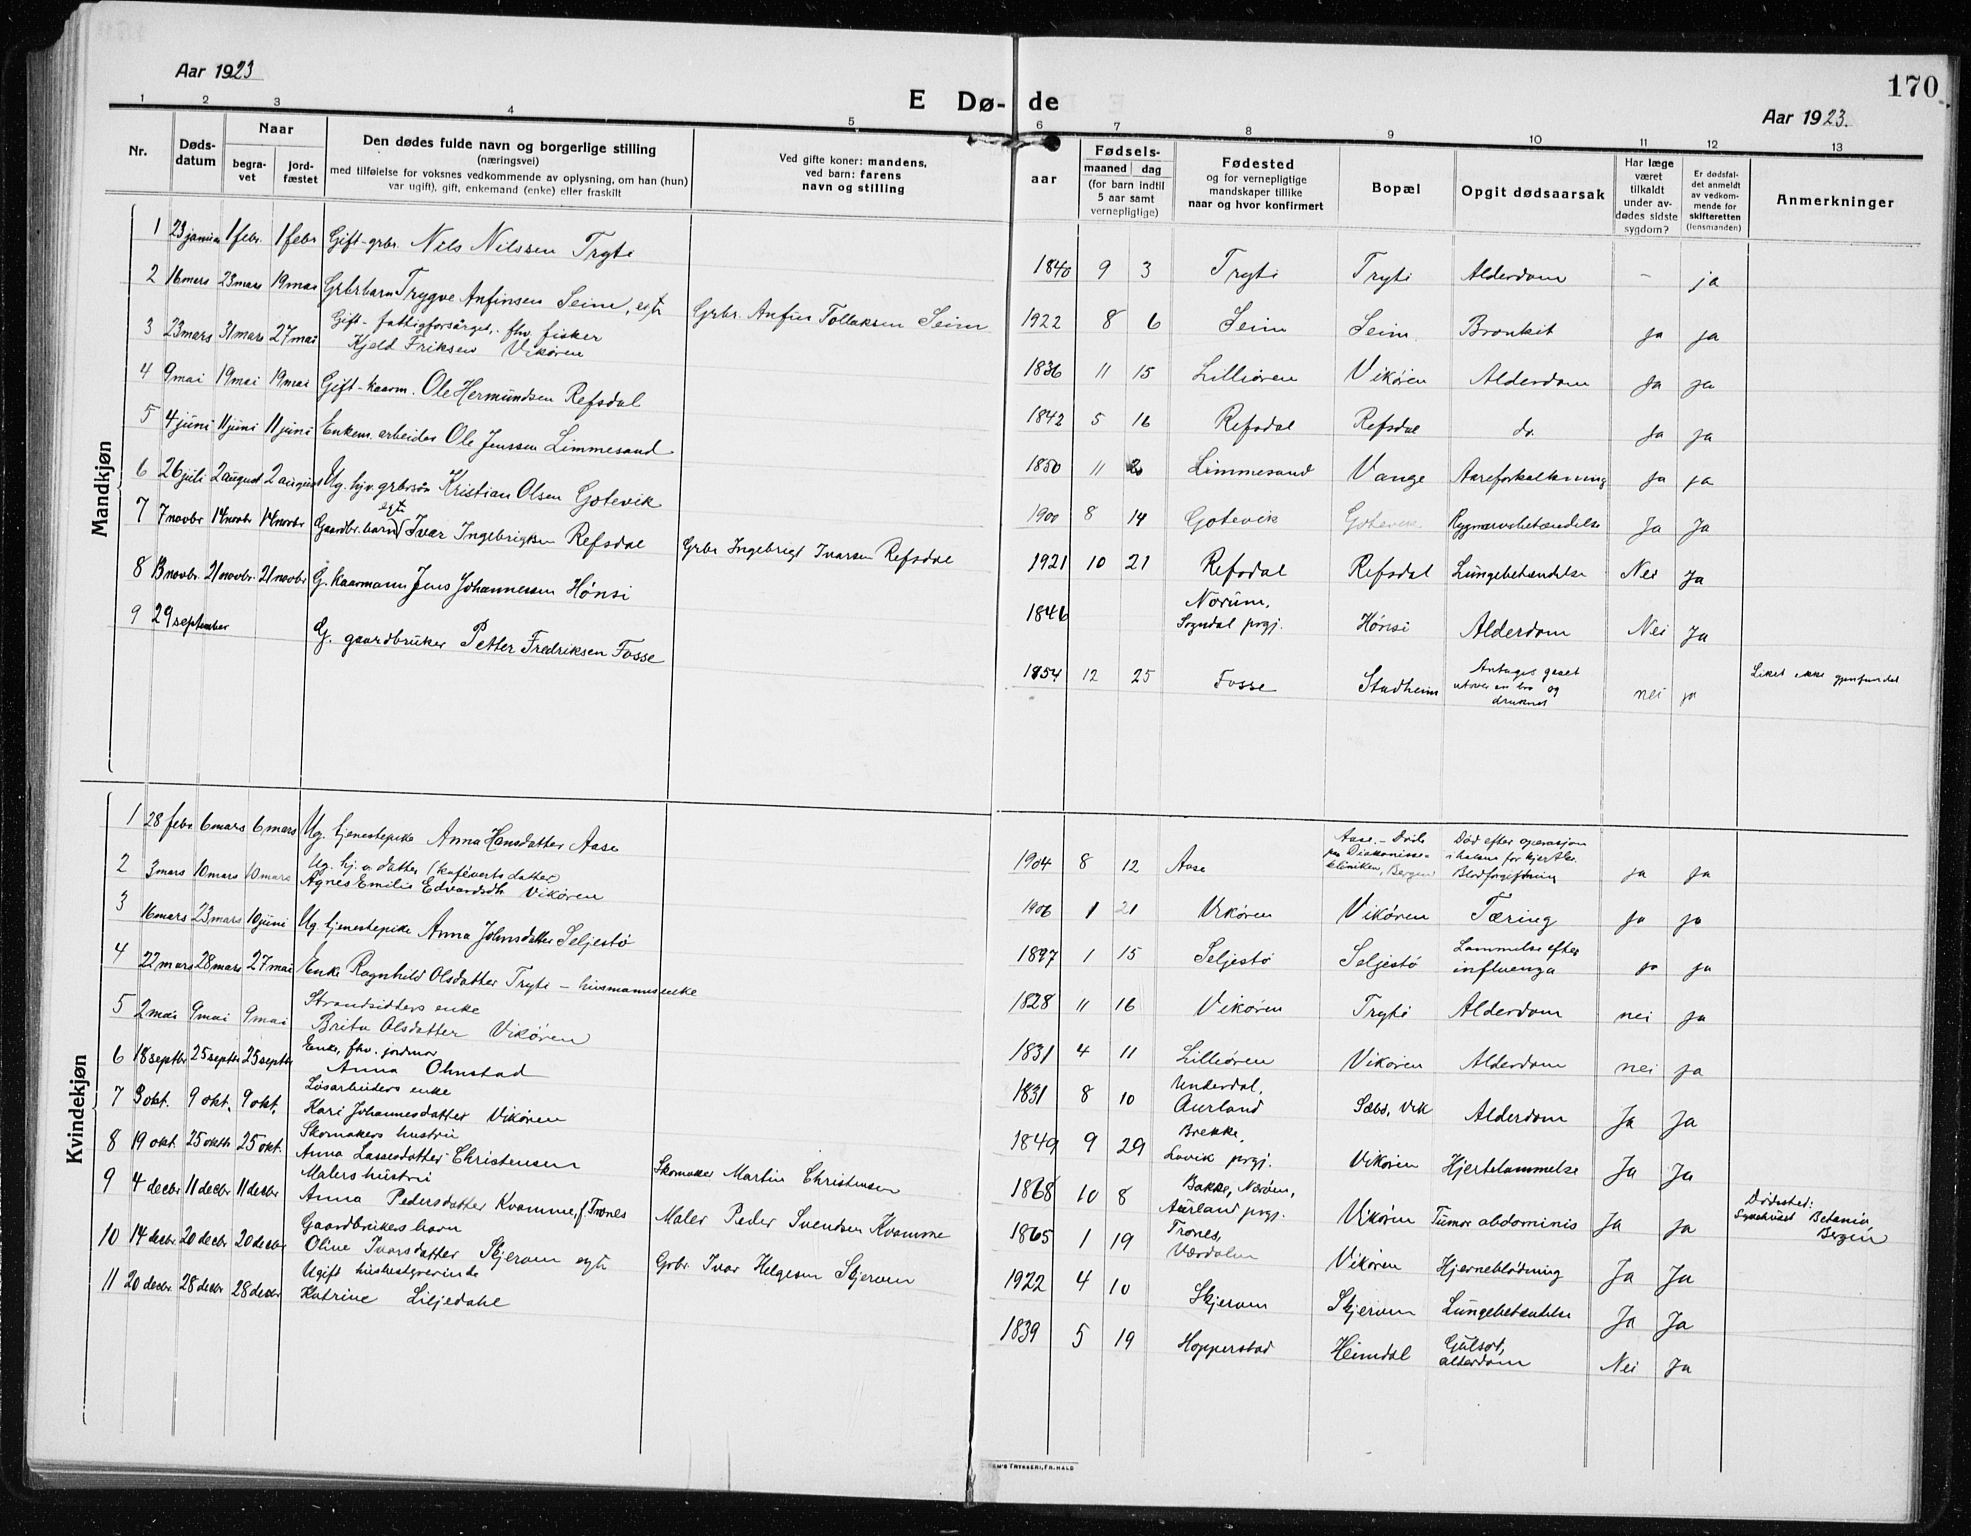 Aar 1923
E Dø- de
170
Aar 1923.
1 2 3 4 5 6 7 8 9 10 11 12 13
Nr.
Døds-
datum
Naar
begra-
vet
jord-
fæstet
Den dødes fulde navn og borgerlige stilling
(næringsvei)
med tilføielse for voksnes vedkommende av oplysning, om han (hun)
var ugift), gift, enkemand (enke) eller fraskilt
Ved gifte koner: mandens,
ved barn: farens
navn og stilling
aar
Fødsels-
maaned dag
(for barn indtil
5 aar samt
vernepligtige)
Fødested
og for vernepligtige
mandskaper tillike
naar og hvor konfirmert
Bopæl
Opgit dødsaarsak
Har læge
været
tilkaldt
under av-
dødes sidste
sygdom?
Er dødsfal-
det anmeldt
av vedkom-
mende for
skifteretten
(lensmanden)
Anmerkninger
Mandkjøn
1 23 januar 1 febr. 1 febr Gift-grbr. Nils Nilssen Tryti 1840 9 3 Tryti Tryti Alderdom - ja
2 16 mars 23 mars 19 mai Grbrbarn Trygve Anfinsen Seim, egt. Grbr. Anfin Tollaksen Seim 1922 8 6 Seim Seim. Bronkit ja ja
3 23 mars 31 mars 27 mai Gift- fattigforsørget, fhv. fisker
Kjeld Eriksen Vikøren 1836 11 15 Lilliøren Vikøren Alderdom Ja ja
4 9 mai 19 mai 19 mai Gift-kaarm. Ole Hermundsen Refsdal 1842 5 16 Refsdal Refsdal do. Ja ja
5 4 juni 11 juni 11 juni Enkem. arbeider Ole Jenssen Limmesand 1850 11 2 Limmesand Vange Aareforkalkning Ja ja
6 26 juli 2 august 2 august Ug. hjv. grbrsøn Kristian Olsen Gotevik 1900 8 14 Gotevik Gotevik Rygmarvsbetændelse Ja Ja
7 7 novbr 14 novbr 14 novbr. Gaardbr. barn egt. Ivar Ingebrigtsen Refsdal Grbr Ingebrigt Ivarsen Refsdal 1921 10 21 Refsdal Refsdal Lungebetændelse Nei Ja
8 13 novbr. 21 novbr. 21 novbr G. kaarmann Jens Johannessen Hønsi 1846 Norum,
Sogndal prgj. Hønsi Alderdom Nei Ja
9 29 september G. gaardbruker Petter Fredriksen Fosse 1854 12 25 Fosse Stadheim Antages gaaet
utover en bro og
druknet nei ja Liket ikke gjenfundet
Kvindekjøn
1 28 febr 6 mars 6 mars Ug. tjenestepike Anna Hansdatter Aase 1904 8 12 Aase Aase. - Døde
paa Diakonisse-
kliniken, Bergen Død efter operasjon
i halsen for kjertler.
Blodforgiftning ja ja
2 3 mars 10 mars 10 mars Ug. hj. v. datter (kaféverts datter)
Agnes Emilie Edvardsdtr Vikøren 1906 1 21 Vikøren Vikøren Tæring ja ja
3 16 mars 23 mars 10 juni Ug. tjenestepike Anna Johnsdatter Seljestø 1897 1 15 Seljestø Seljestø Lammelse efter
influenza ja ja
4 22 mars 28 mars 27 mai Enke Ragnhild Olsdatter Tryti - husmannsenke 1828 11 16 Vikøren Tryti Alderdom nei ja
5 2 mai 9 mai 9 mai Strandsidders enke
Brita Olsdatter Vikøren 1831 4 11 Lilliøren Vikøren Alderdom nei ja
6 18 septbr 25 septbr 25 septbr Enke, fhv. jordmor
Anna Ohnstad 1831 8 10 Underdal,
Aurland Sæbø, Vik Alderdom Ja Ja
7 3 okt. 9 okt. 9 okt. Løsarbeiders enke
Kari Johannesdatter Vikøren 1849 9 29 Brekke,
Lavik prgj. Vikøren Hjertelammelse Ja Ja
8 19 okt. 25 oktbr 25 okt. Skomakers hustru
Anna Lassesdatter Christensen Skomaker Martin Christensen 1868 10 8 Bakke, Nærøen,
Aurland prgj. Vikøren Tumor abdominis Ja ja Dødssted:
Sykehuset Betanien
Bergen
9 4 decbr 11 decbr 11 decbr Malers hustru
Anna Pedersdatter Kvamme, f. Trones Maler Peder Svendsen Kvamme 1865 1 19 Trones,
Værdalen Vikøren Hjerneblødning Ja Ja
10 14 decbr. 20 decbr 20 decbr Gaardbrukers barn
Oline Ivarsdatter Skjerven egt. Grbr. Ivar Helgesen Skjerven 1922 4 10 Skjerven Skjerven Lungebetændelse Ja Ja
11 20 decbr. 28 decbr 28 decbr Ugift husbestyrerinde
Katrine Liljedahl 1839 5 19 Hopperstad Heimdal Gulsot,
alderdom Nei Ja
TRYKKERI, FR. HALD